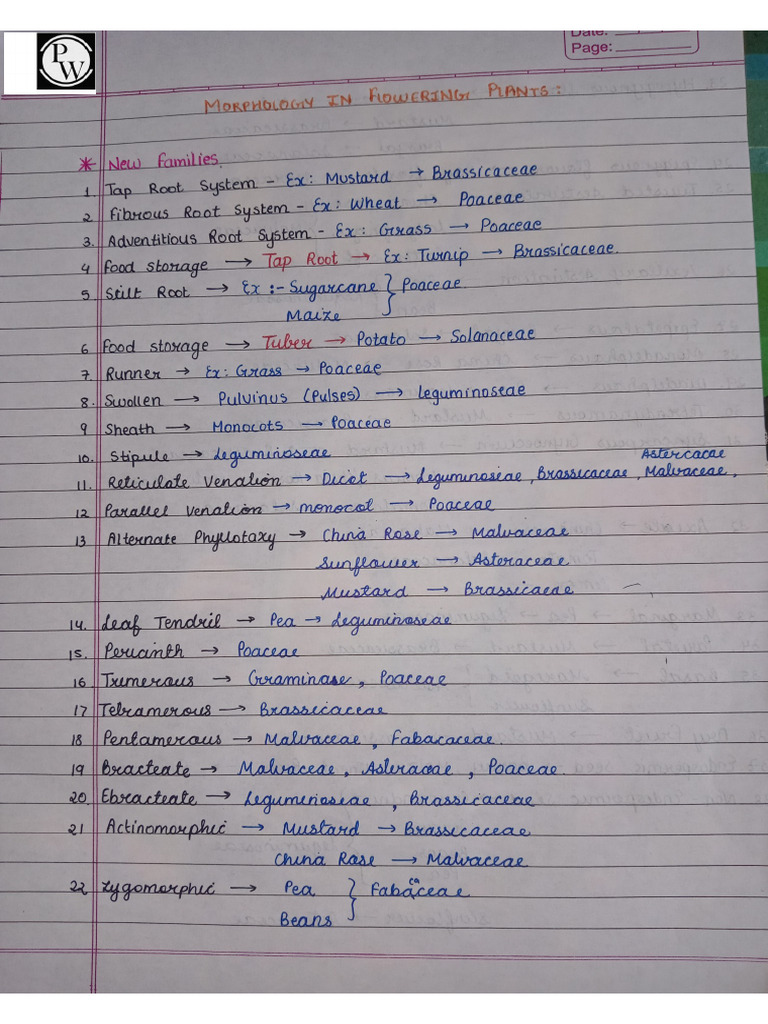 PW
Date:
Page:
MORPHOLOGY IN FLOWERING PLANTS:
* New Families
1. Tap Root System - Ex: Mustard → Brassicaceae
2 Fibrous Root System - Ex: Wheat → Poaceae
3. Adventitious Root System - Ex: Grass → Poaceae
4 Food storage → Tap Root → Ex: Turnip → Brassicaceae.
5 Stilt Root → Ex :- Sugarcane } Poaceae.
Maize
6. Food storage → Tuber → Potato → Solanaceae
7. Runner → Ex: Grass → Poaceae
8. Swollen → Pulvinus (Pulses) → Leguminoseae
9 Sheath → Monocots → Poaceae
10. Stipule → Leguminoseae
Astercacae
11. Reticulate Venation → Dicot → Leguminoseae, Brassicaceae, Malvaceae,
12 Parallel Venation → monocot → Poaceae
13 Alternate Phyllotaxy → China Rose → Malvaceae
Sunflower → Asteraceae
Mustard → Brassicaeae
14. Leaf Tendril → Pea → Leguminoseae
15. Perianth → Poaceae
16 Trimerous → Graminase, Poaceae
17 Tetramerous → Brassicaceae
18 Pentamerous → Malvaceae, Fabacaceae.
19 Bracteate → Malvaceae, Asteraceae, Poaceae.
20. Ebracteate → Leguminoseae, Brassicaceae
21 Actinomorphic → Mustard → Brassicaceae
China Rose → Malvaceae
22 Zygomorphic → Pea } Fabacaceae
Beans